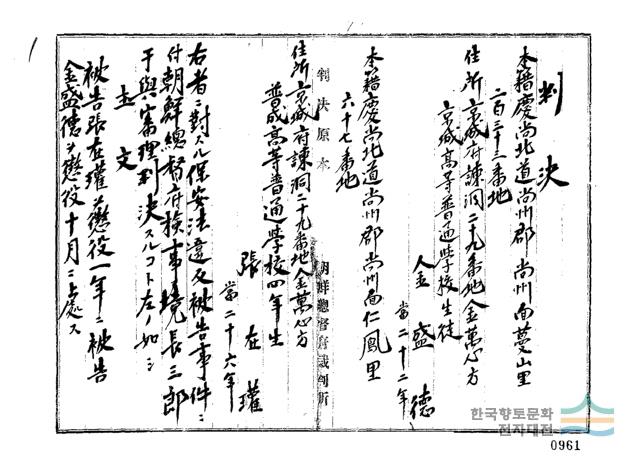 判決
本籍慶尚北道尚州郡尚州面蔓山里
二百三十三番地
住所京城府諫洞二十九番地金萬心方
京城高等普通学校生徒
金盛徳
当二十二年
本籍慶尚北道尚州郡尚州面仁鳳里
六十七番地
判決原本
朝鮮總督府裁判所
住所京城府諫洞二十九番地金萬心方
普成高等普通学校四年生
張在瓘
当二十六年
右者ニ対スル保安法違反被告事件ニ
付朝鮮總督府検事境長三郎
干與審理判決スルコト左ノ如シ
主文
被告張在瓘ヲ懲役一年ニ被告
金盛徳ヲ懲役十月ニ処ス
한국향토문화
전자대전
0961